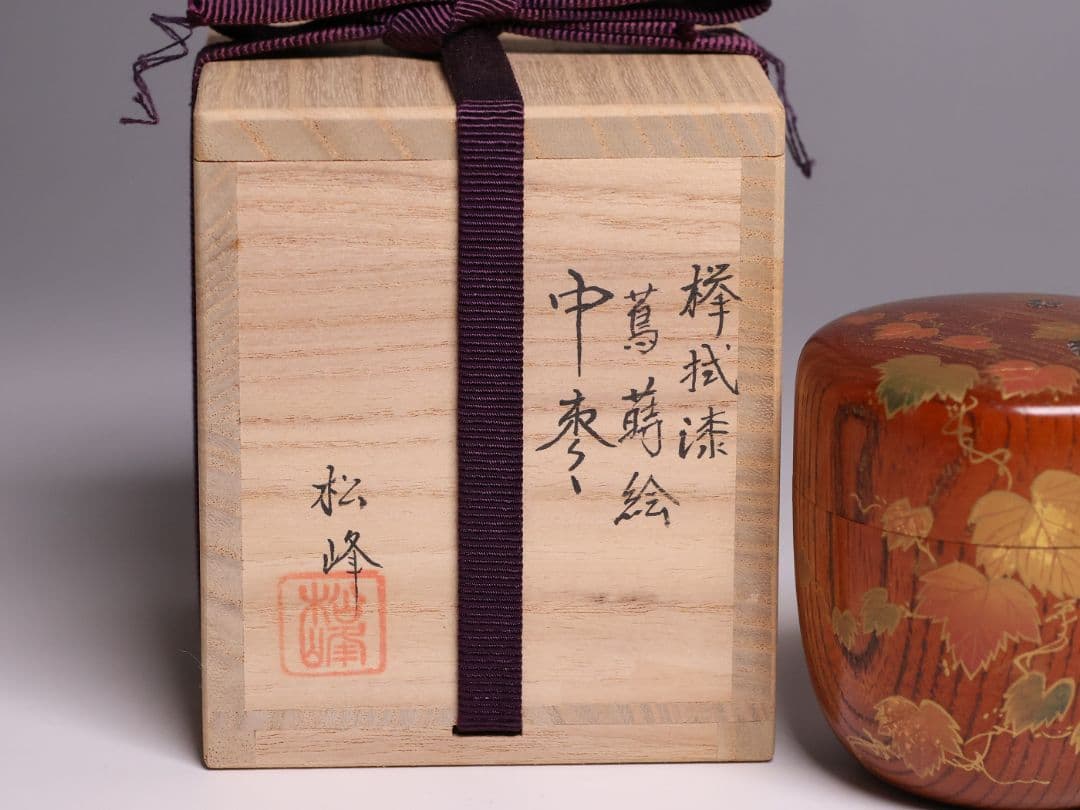 欅拭漆
蔦蒔絵
中棗
松峰
松峰